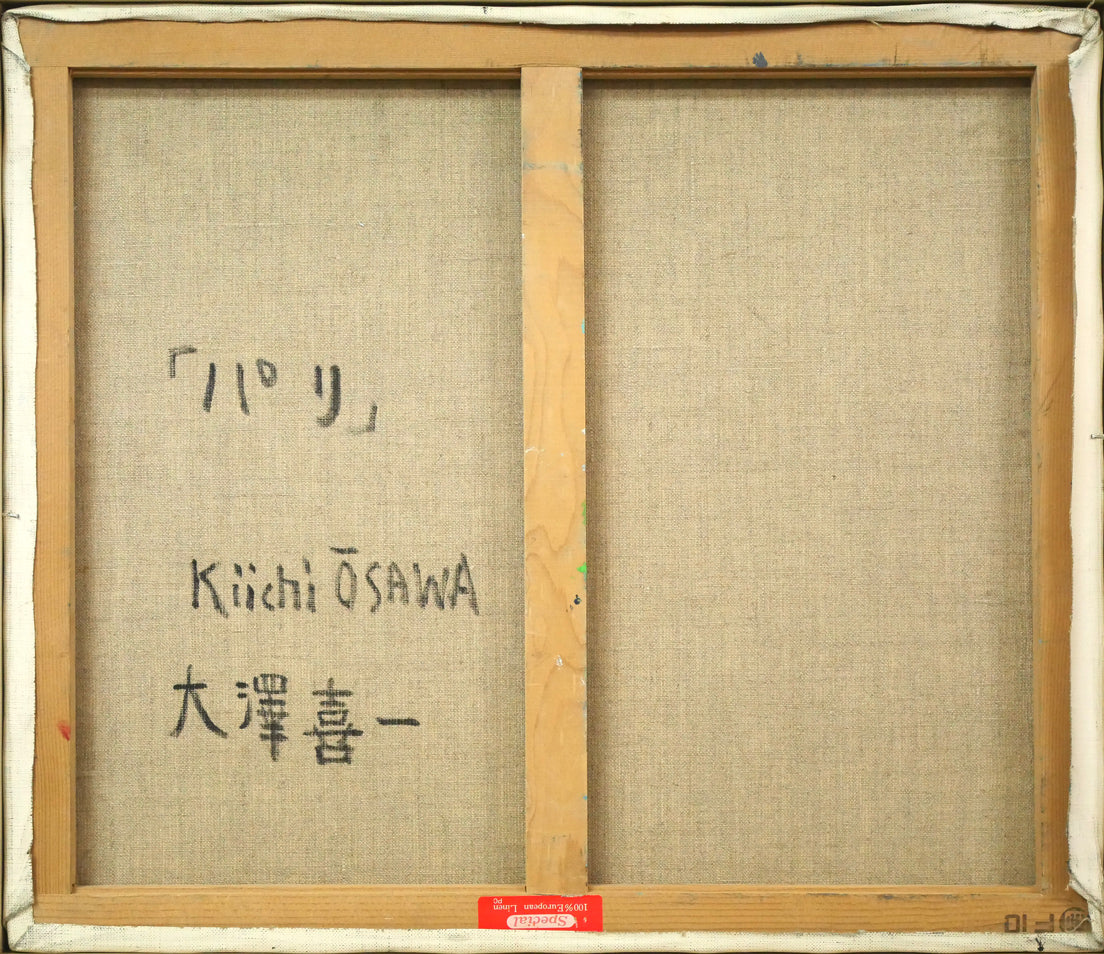 「パリ」
Kiichi ŌSAWA
大澤喜一
Special
100% European Linen
PC
6
F 10